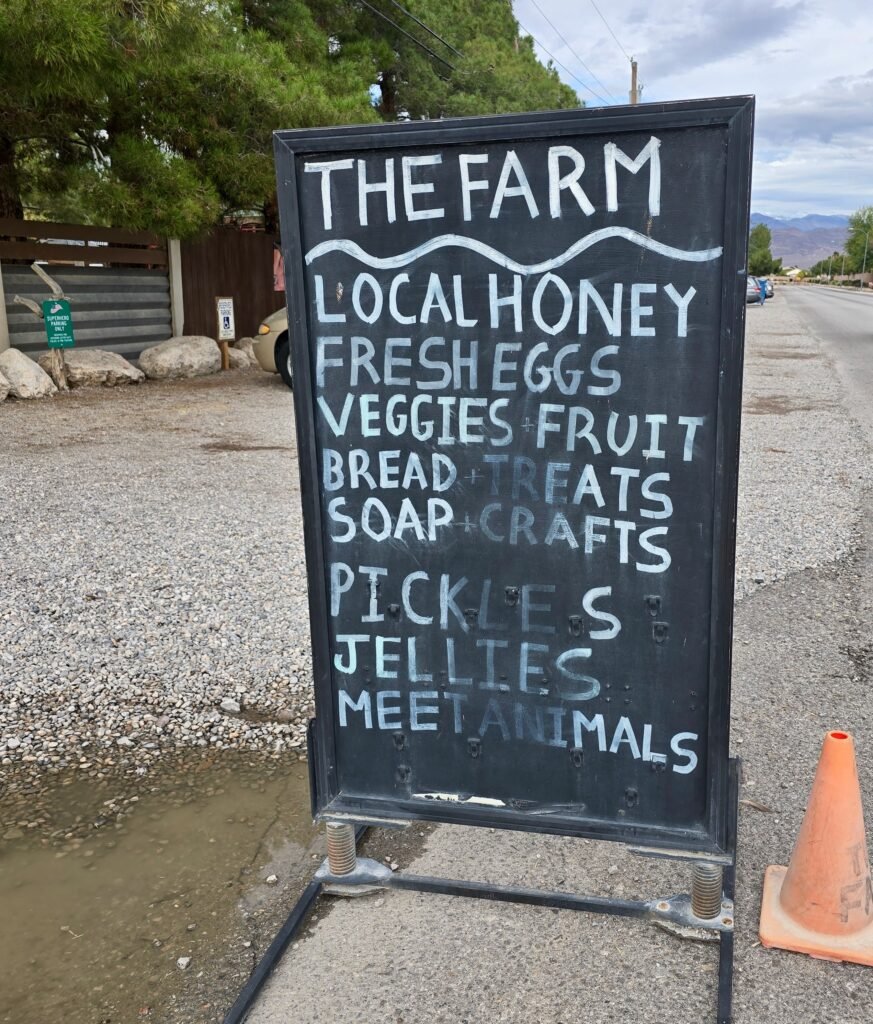 THE FARM
LOCAL HONEY
FRESH EGGS
VEGGIES + FRUIT
BREAD + TREATS
SOAP + CRAFTS
PICKLES
JELLIES
MEET ANIMALS
SUPERHERO
PARKING
ONLY
RESERVED
PARKING